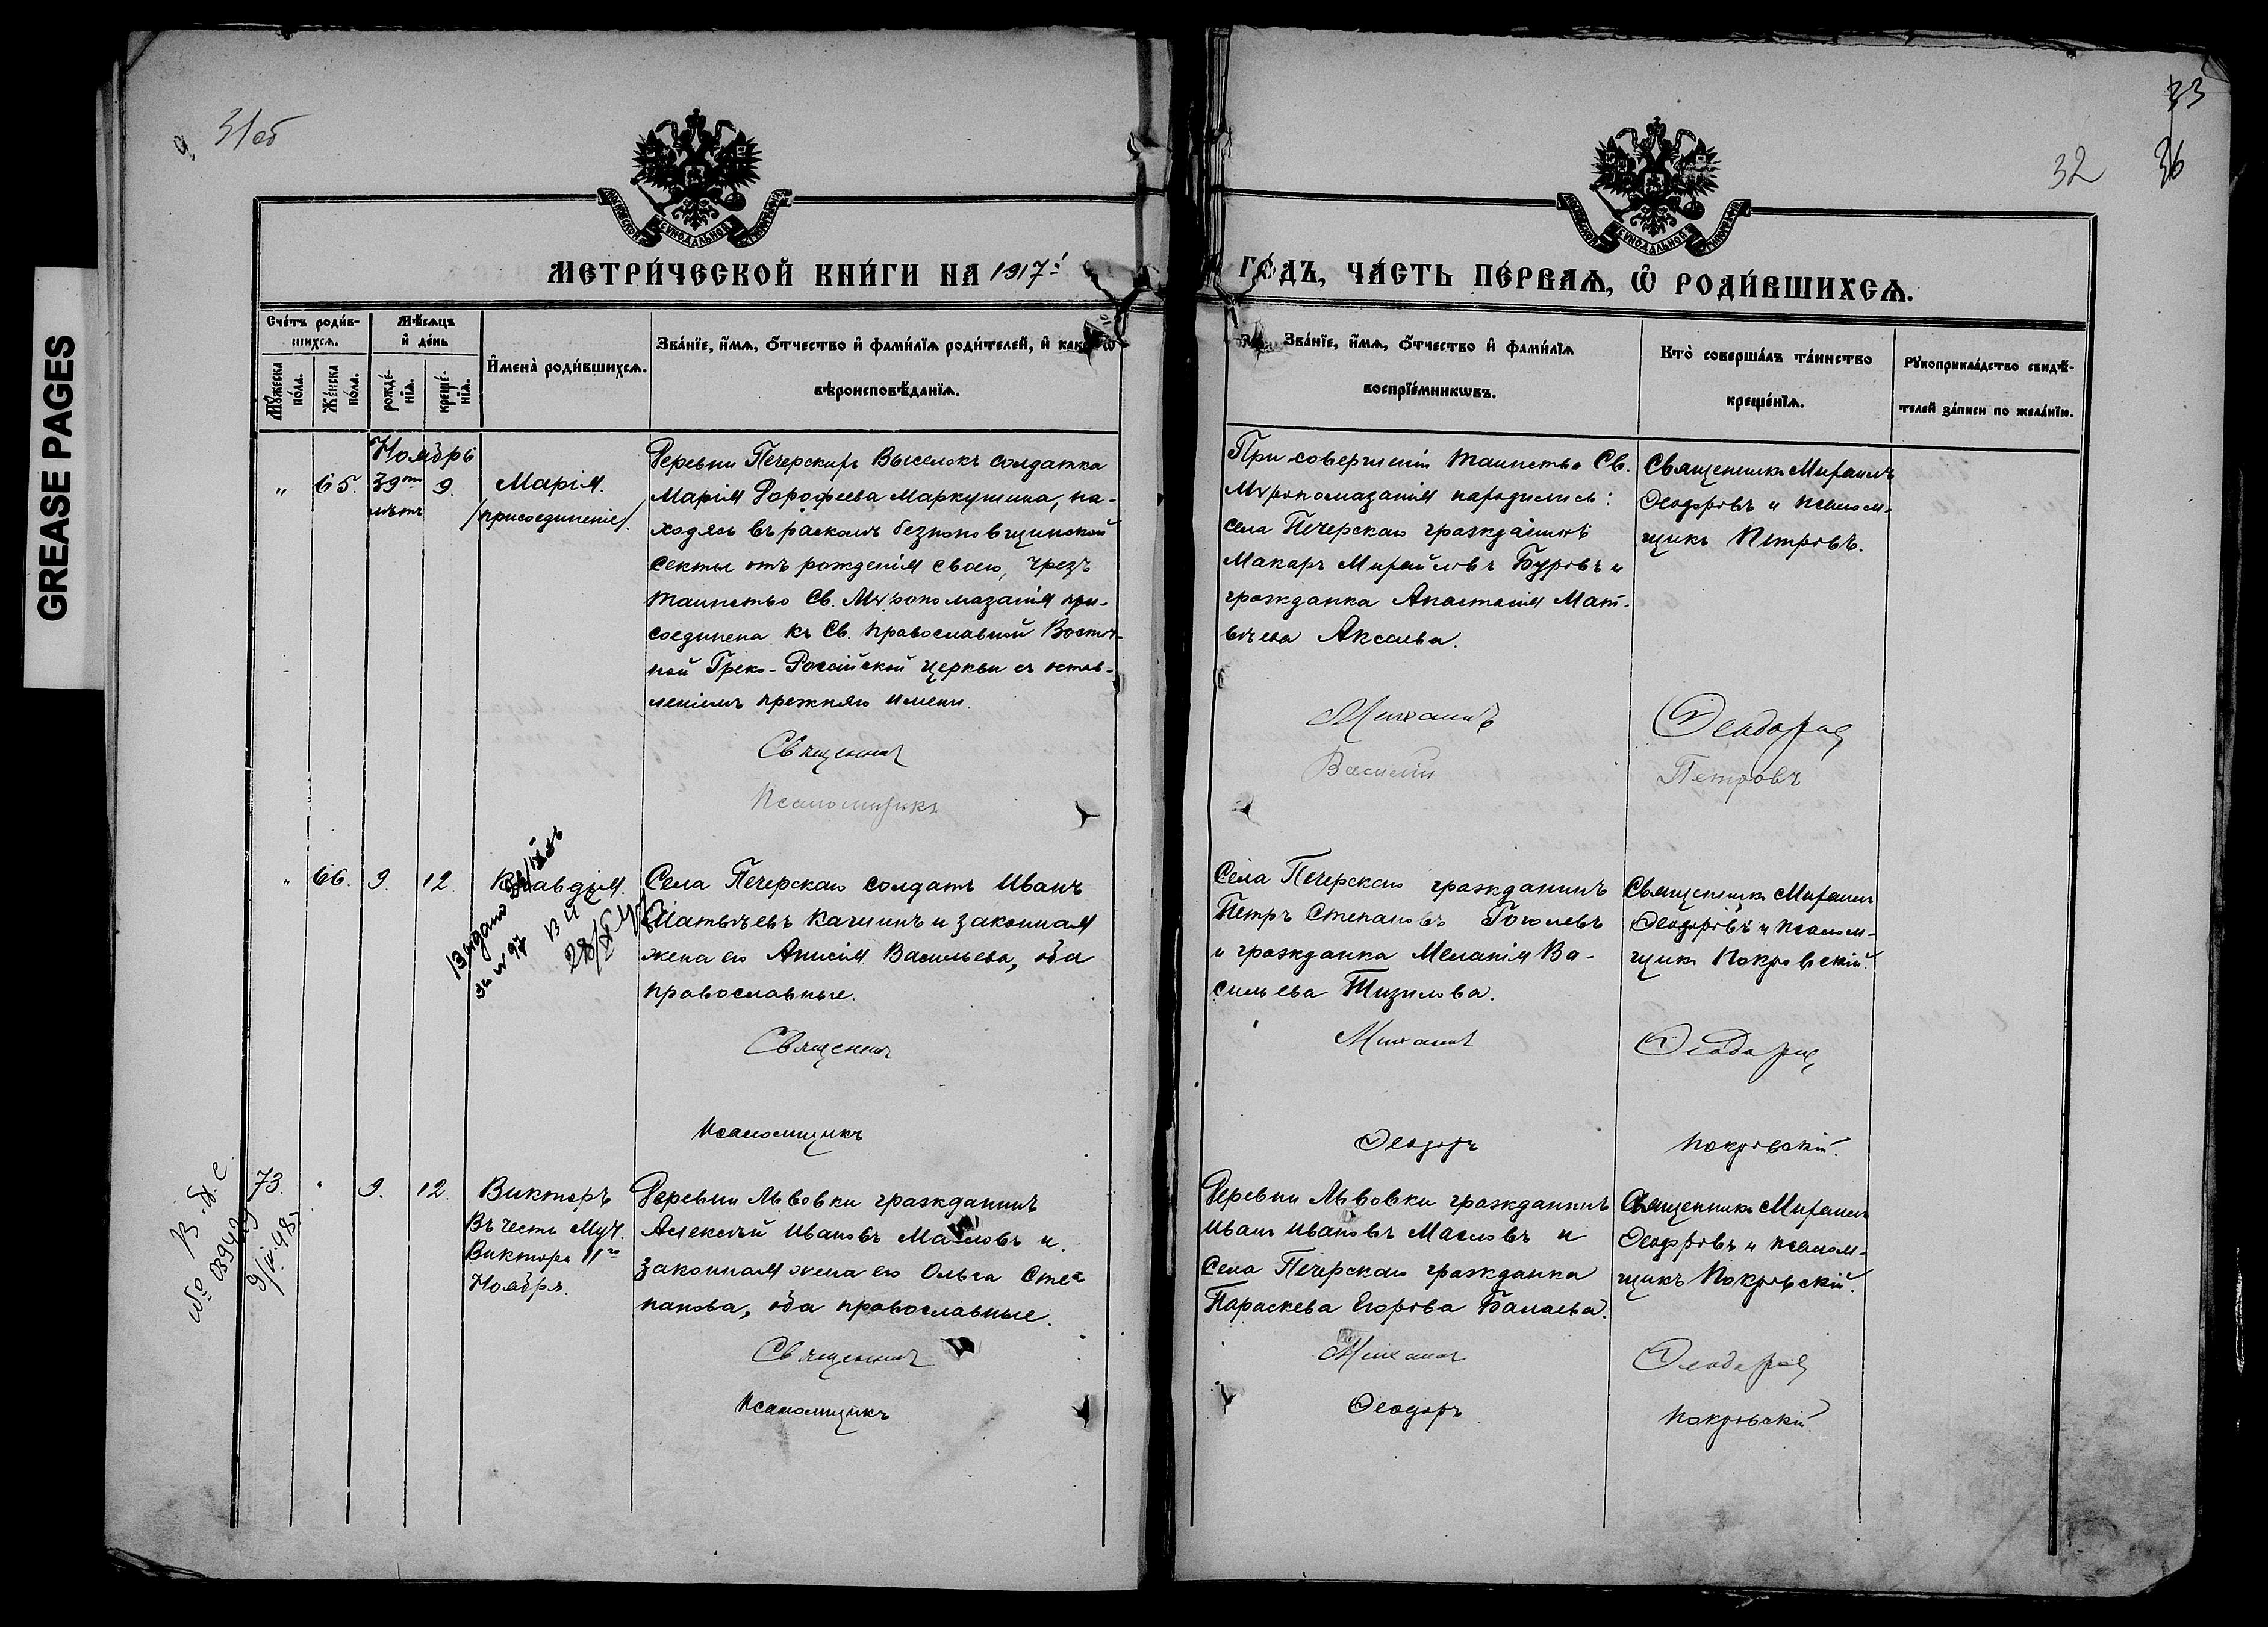 GREASE PAGES
31об
33
32
36
МОСКОВСКОЙ СИНОДАЛЬНОЙ ТИПОГРАФІИ
МОСКОВСКОЙ СИНОДАЛЬНОЙ ТИПОГРАФІИ
МЕТРИ́ЧЕСКОЙ КНИ́ГИ НА 1917й
ГО́ДЪ, ЧА́СТЬ ПЕ́РВАѦ, Ѡ҆ РОДИ́ВШИХСѦ.
Сче́тъ роди́в-
шихсѧ.
Мѣ́сѧцъ
и҆ де́нь
Мꙋ́жеска по́ла.
Же́нска по́ла.
рожде́-
нїѧ.
креще́-
нїѧ.
И҆мена̀ роди́вшихсѧ.
Зва́нїе, и҆́мѧ, ѻ҆́тчество и҆ фами́лїѧ роди́телей, и҆
вѣроисповѣ́данїѧ.
Зва́нїе, и҆́мѧ, ѻ҆́тчество и҆ фами́лїѧ
воспрїе́мникѡвъ.
Кто̀ соверша́лъ та́инство
креще́нїѧ.
Рꙋкоприкла́дство свидѣ́-
телей за́писи по жела́нїю.
Ноябрь
" 65. 39ти 9. Марія.
лѣтъ /присоединеніе/.
Деревни Печерскихъ Выселокъ солдатка
Марія Дорофеева Маркушина, на-
ходясь въ расколѣ безпоповщинской
секты отъ рожденія своего, чрезъ
таинство Св. Мѵропомазанія при-
соединена къ Св. Православной Восточ-
ной Греко-Россійской церкви съ остав-
леніемъ прежняго имени.
Священникъ
Псаломщикъ
При совершеніи таинства Св.
Мѵропомазанія находились:
села Печерскаго гражданинъ
Макаръ Михайловъ Буровъ и
гражданка Анастасія Мат-
вѣева Аксаева.
Михаилъ
Василій
Священникъ Михаилъ
Ѳеодоровъ и псалом-
щикъ Петровъ.
Ѳеодоровъ
Петровъ
" 66. 9. 12. Клавдія.
Выдано
за № 97
Села Печерскаго солдатъ Иванъ
Матвѣевъ Качинъ и законная
жена его Анисія Васильева, оба
православные.
Священникъ
Псаломщикъ
Села Печерскаго гражданинъ
Петръ Степановъ Гоголевъ
и гражданка Меланія Ва-
сильева Тизилова.
Михаилъ
Ѳеодоръ
Священникъ Михаилъ
Ѳеодоровъ и псалом-
щикъ Покровскій.
Ѳеодоровъ
Покровскій.
73. " 9. 12. Викторъ
Въ честь Муч.
Виктора 11го
Ноября.
Деревни Львовки гражданинъ
Алексѣй Ивановъ Масловъ и
законная жена его Ольга Сте-
панова, оба православные.
Священникъ
Псаломщикъ
Деревни Львовки гражданинъ
Иванъ Ивановъ Масловъ и
села Печерскаго гражданка
Параскева Егорова Балаева.
Михаилъ
Ѳеодоръ
Священникъ Михаилъ
Ѳеодоровъ и псалом-
щикъ Покровскій.
Ѳеодоровъ
Покровскій